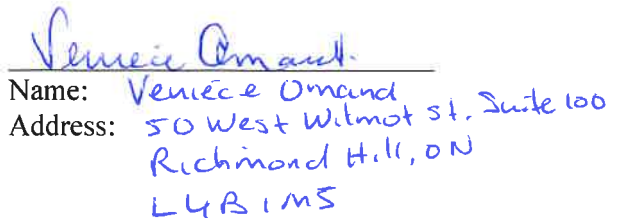 Veniece Omand
Name: Veniece Omand
Address: 50 West Wilmot St. Suite 100
Richmond Hill, ON
L4B 1M5